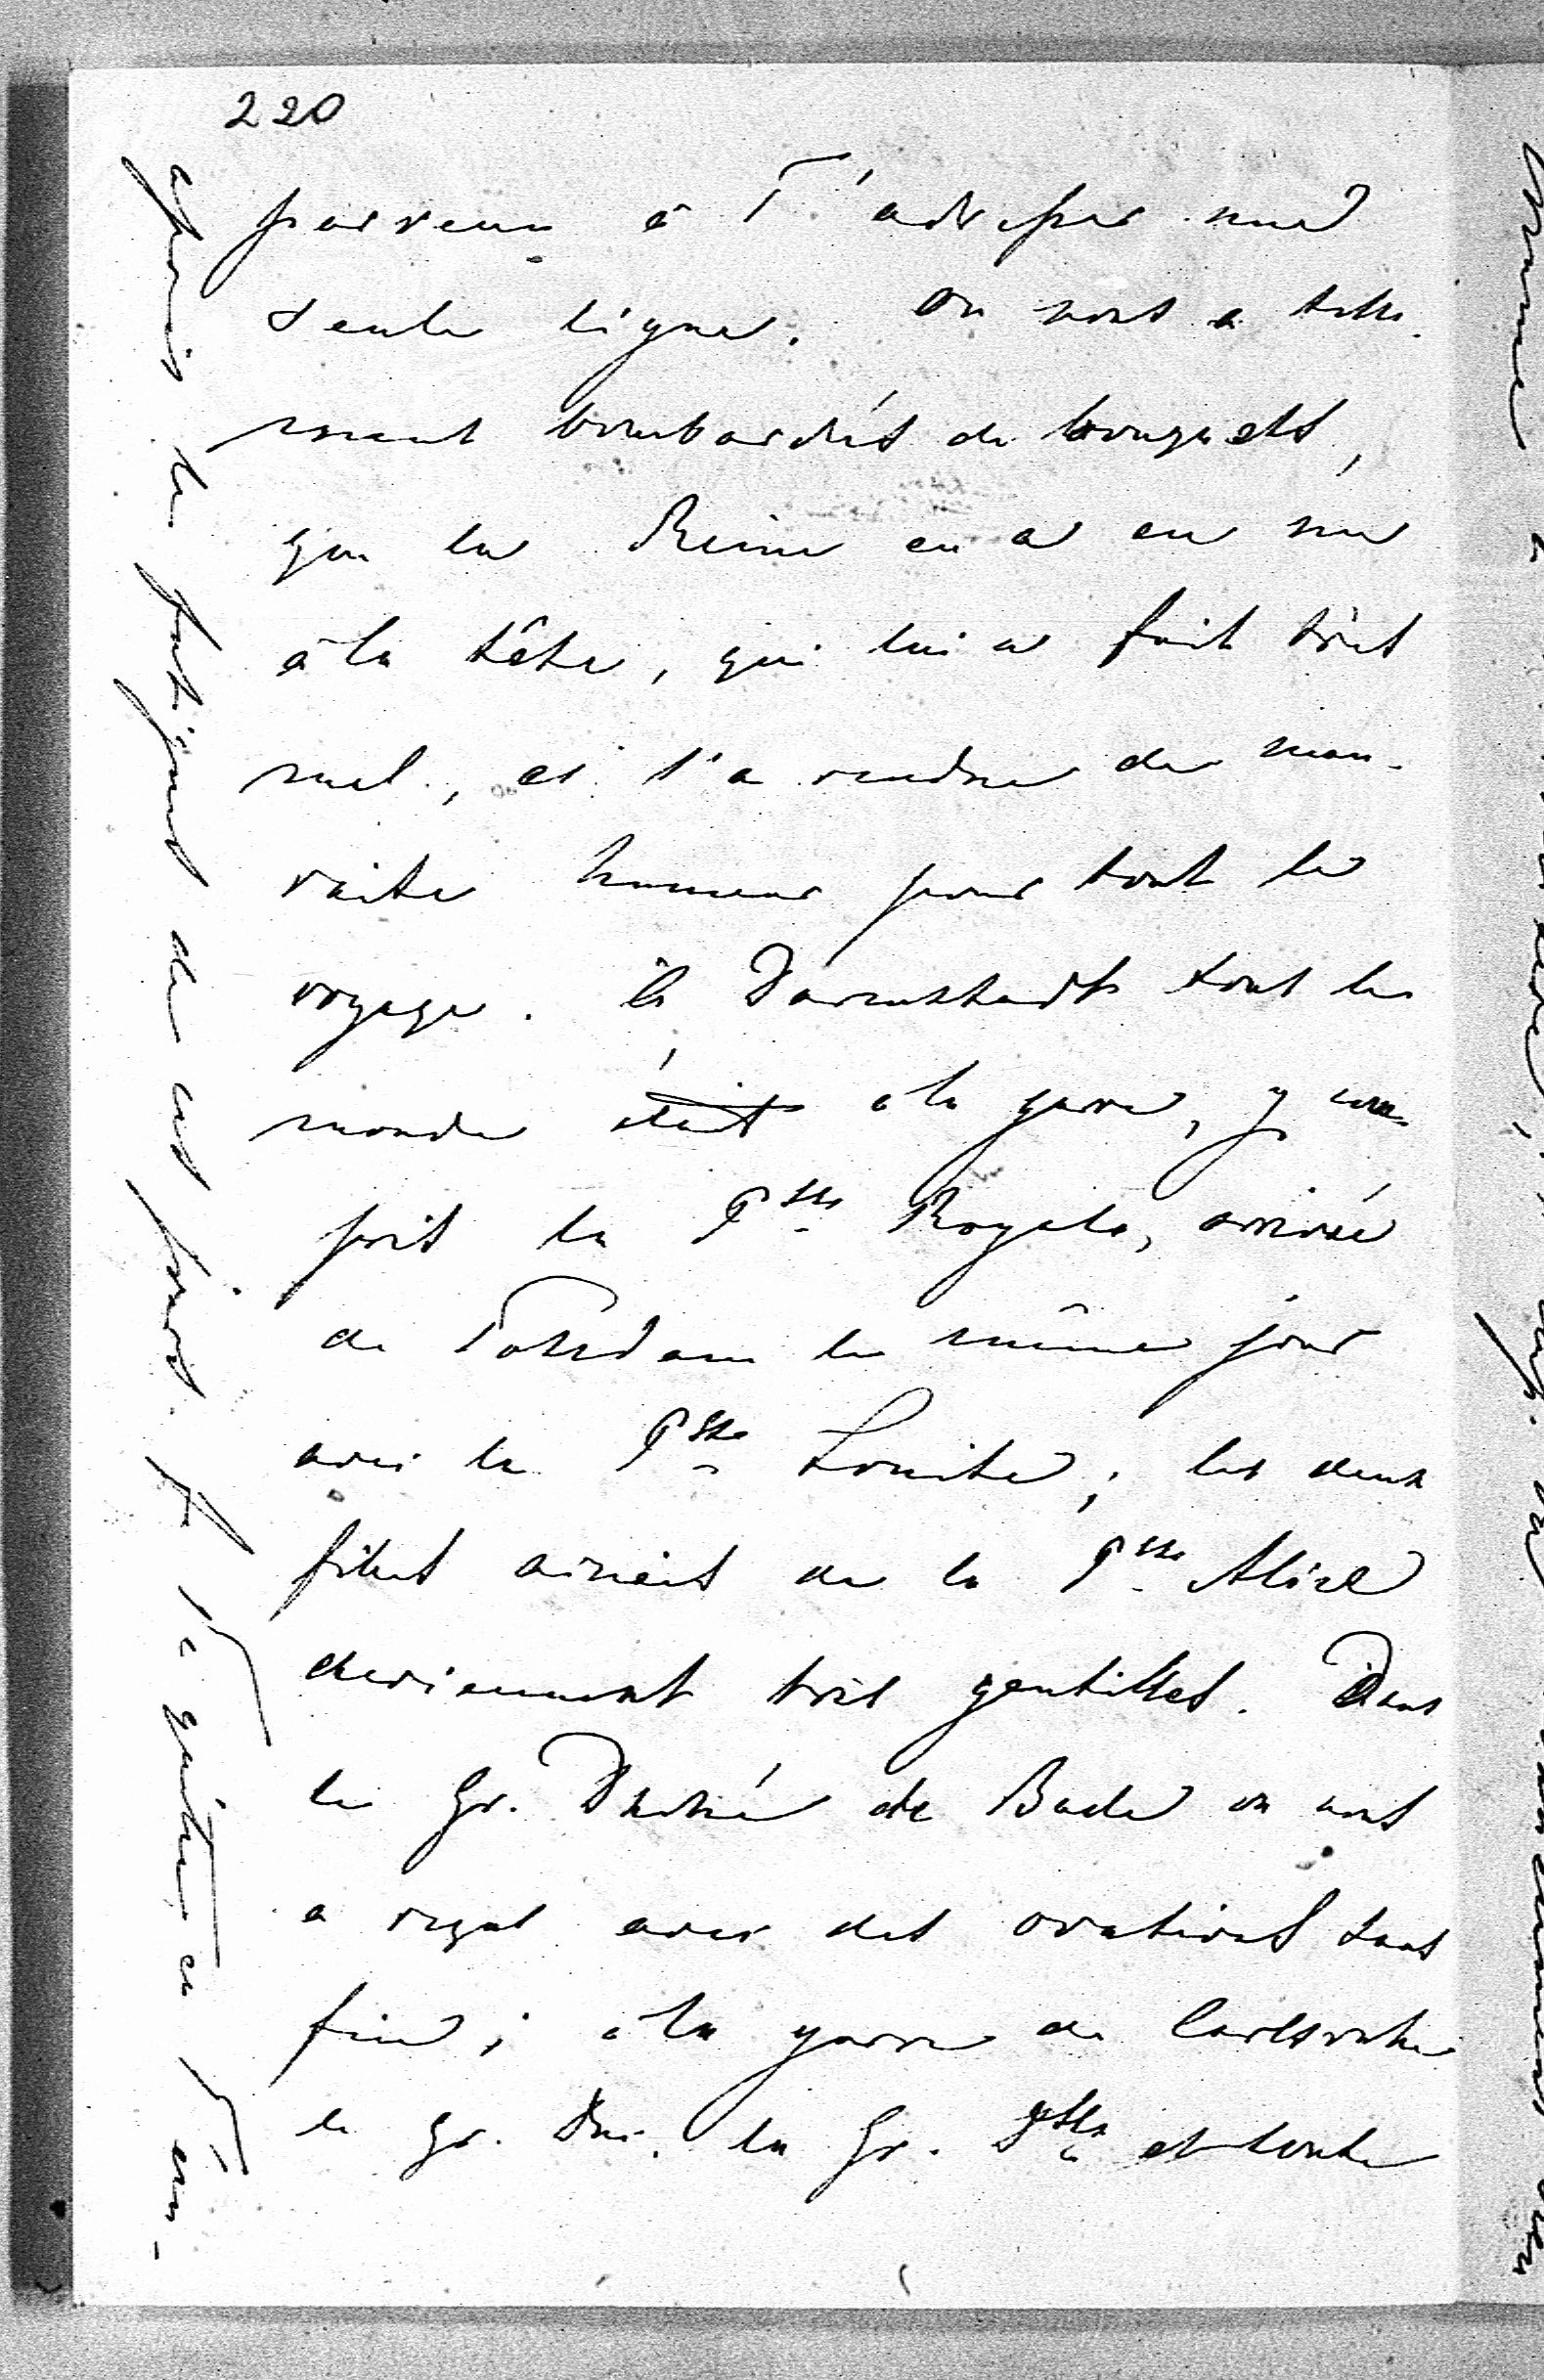 220
parvenu à T'adresser une
seule ligne. On nous a telle-
ment bombardés de bouquets,
que la Reine en a eu un
à la tête, qui lui a fait très
mal, et l'a rendue de mau-
vaise humeur pour tout le
voyage. À Darmstadt tout le
monde était à la gare, y com
pris la Psse Royale, arrivée
de Potsdam le même jour
avec la Psse Louise; les deux
filles ainées de la Psse Alice
deviennent très gentilles. Dans
le Gr. Duché de Bade on nous
a reçus avec des ovations sans
fin; à la gare de Carlsruhe
le Gr. Duc, la Gr. Dsse et toute
après les fatigues de ces jours. Je Te quitte en T'em-